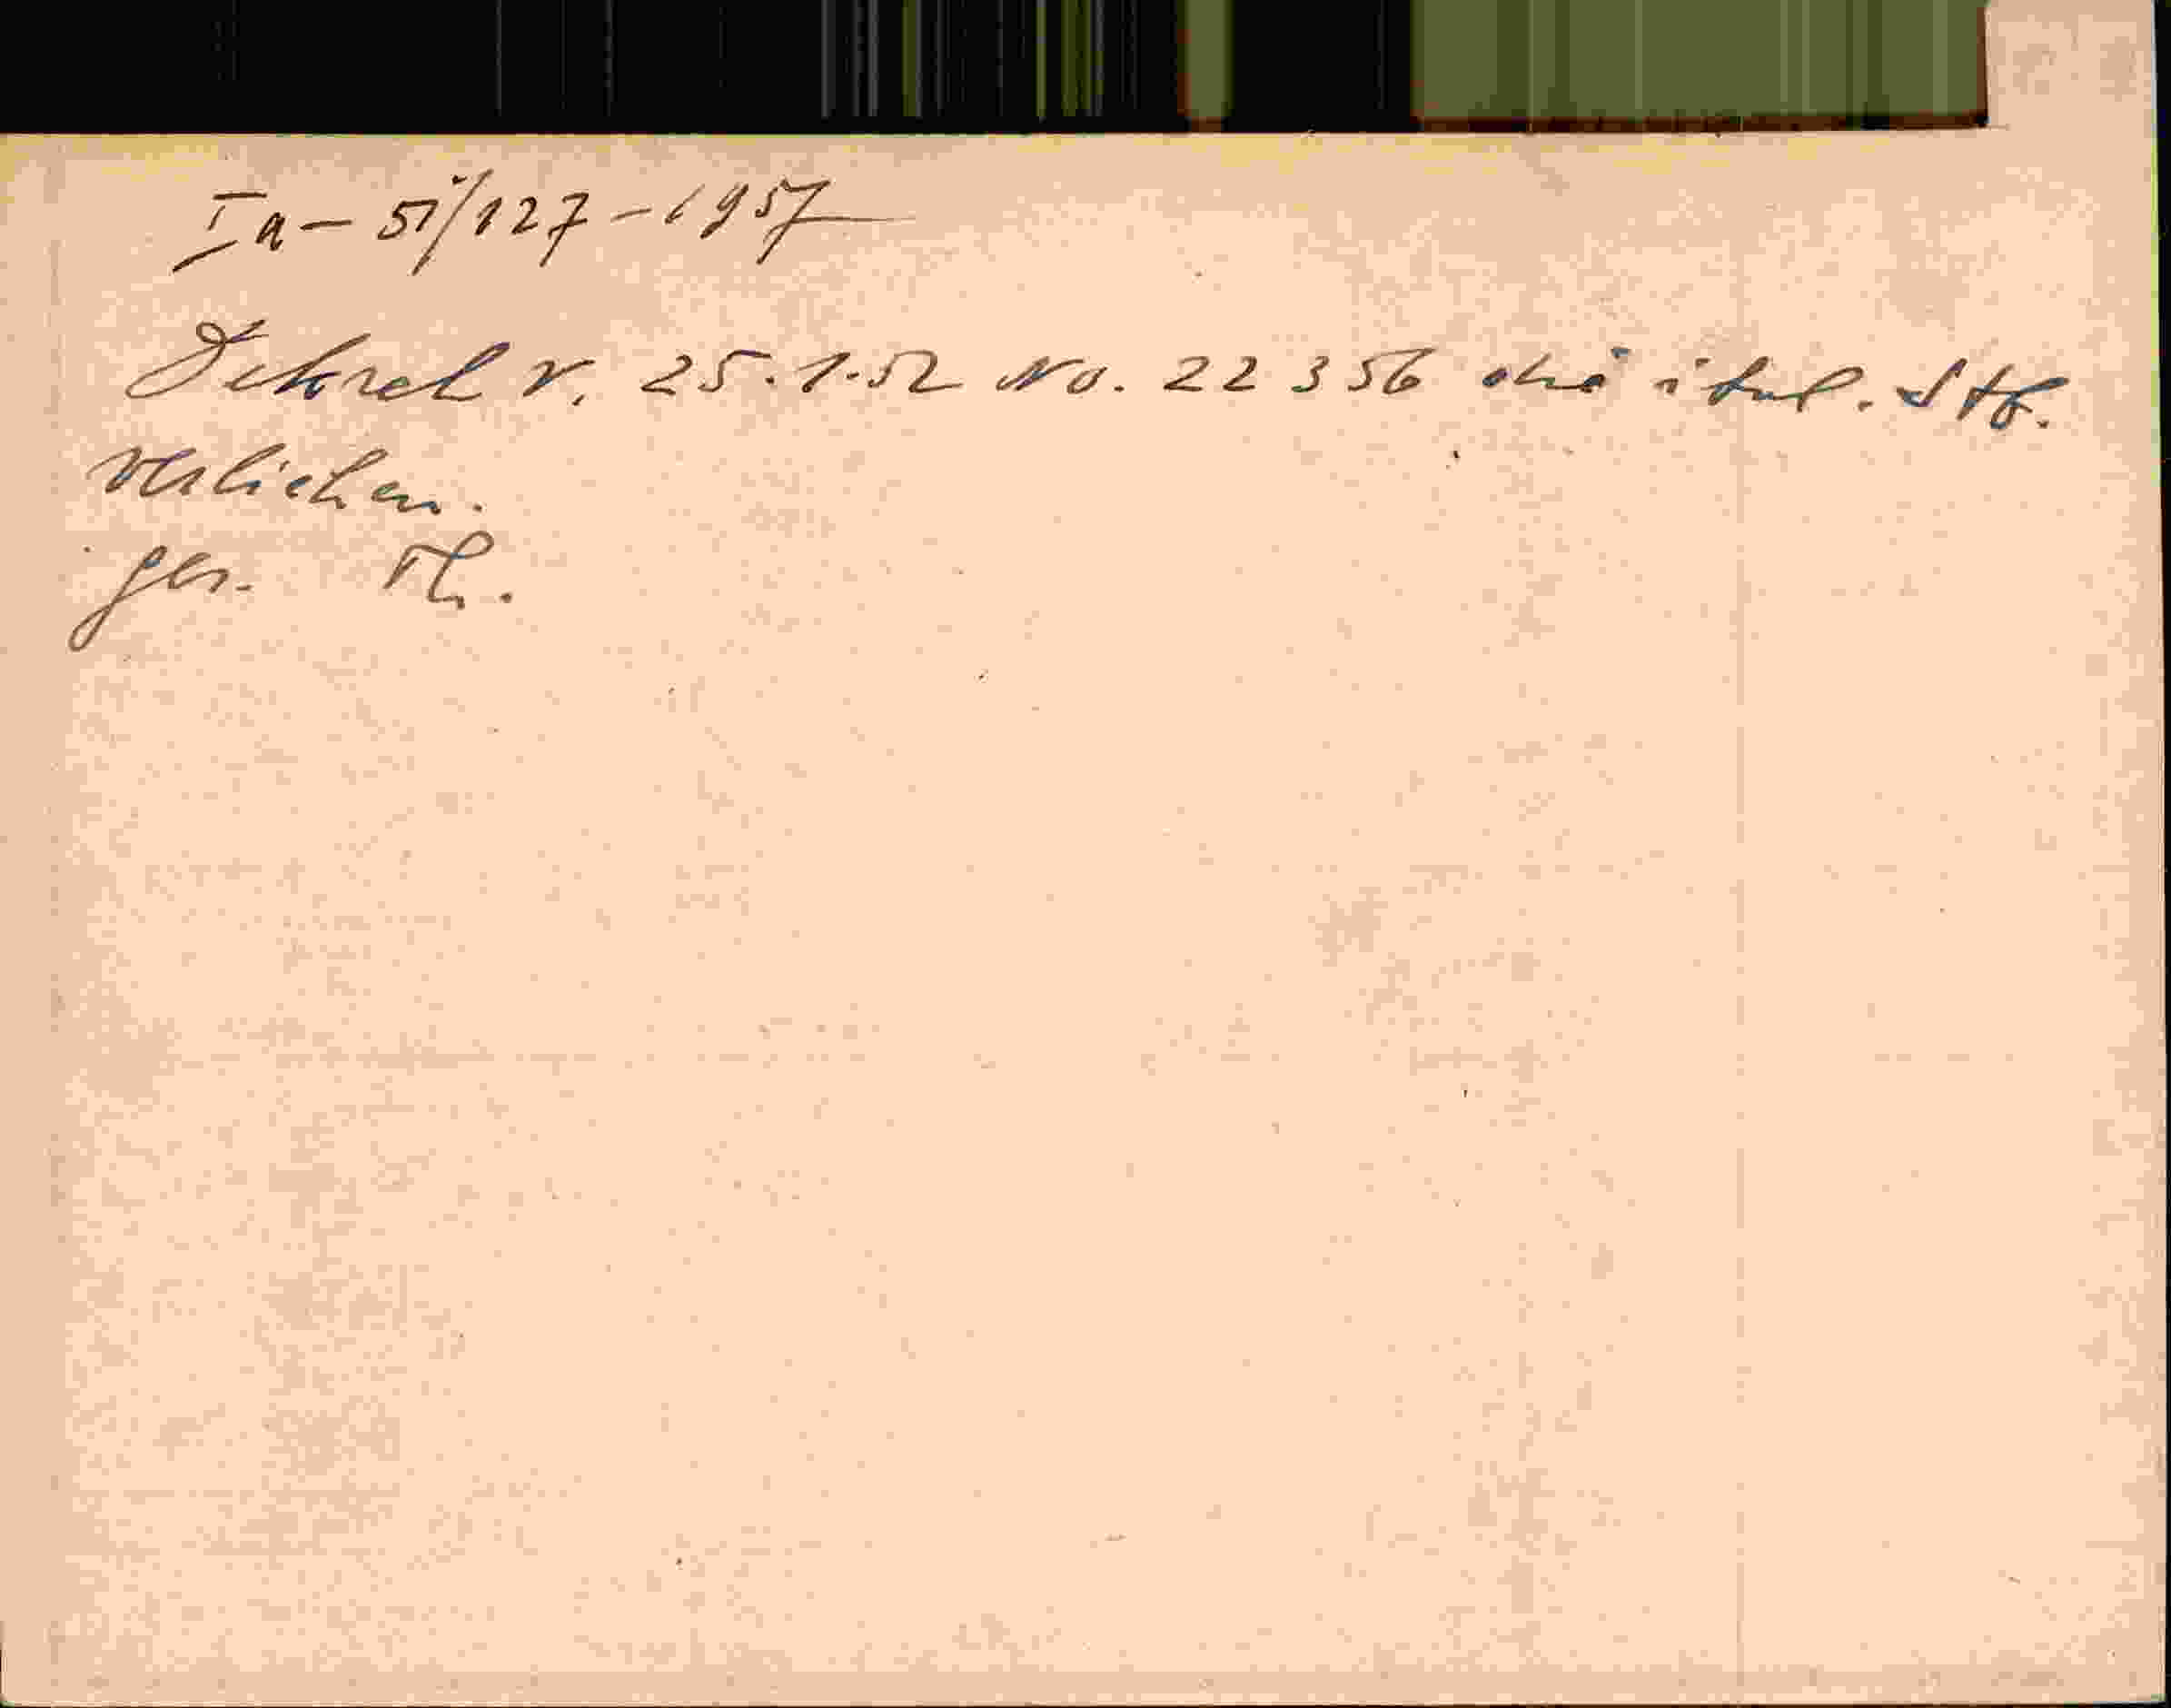 Ia - 51/127 - 1957
Dekret v. 25.1.52 No. 22 356 die ital. Stb.
verliehen.
gez. Th.